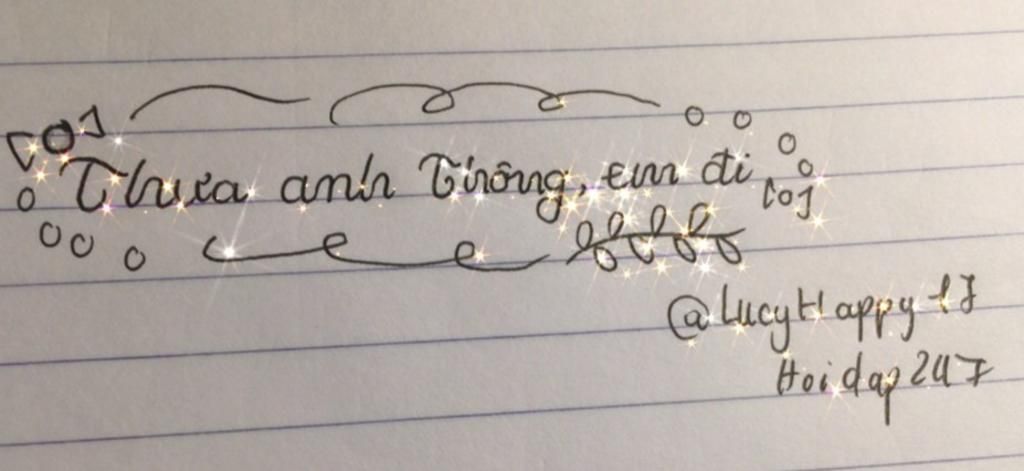 Thưa anh Thông, em đi
@LucyHappy17
Hoidap247